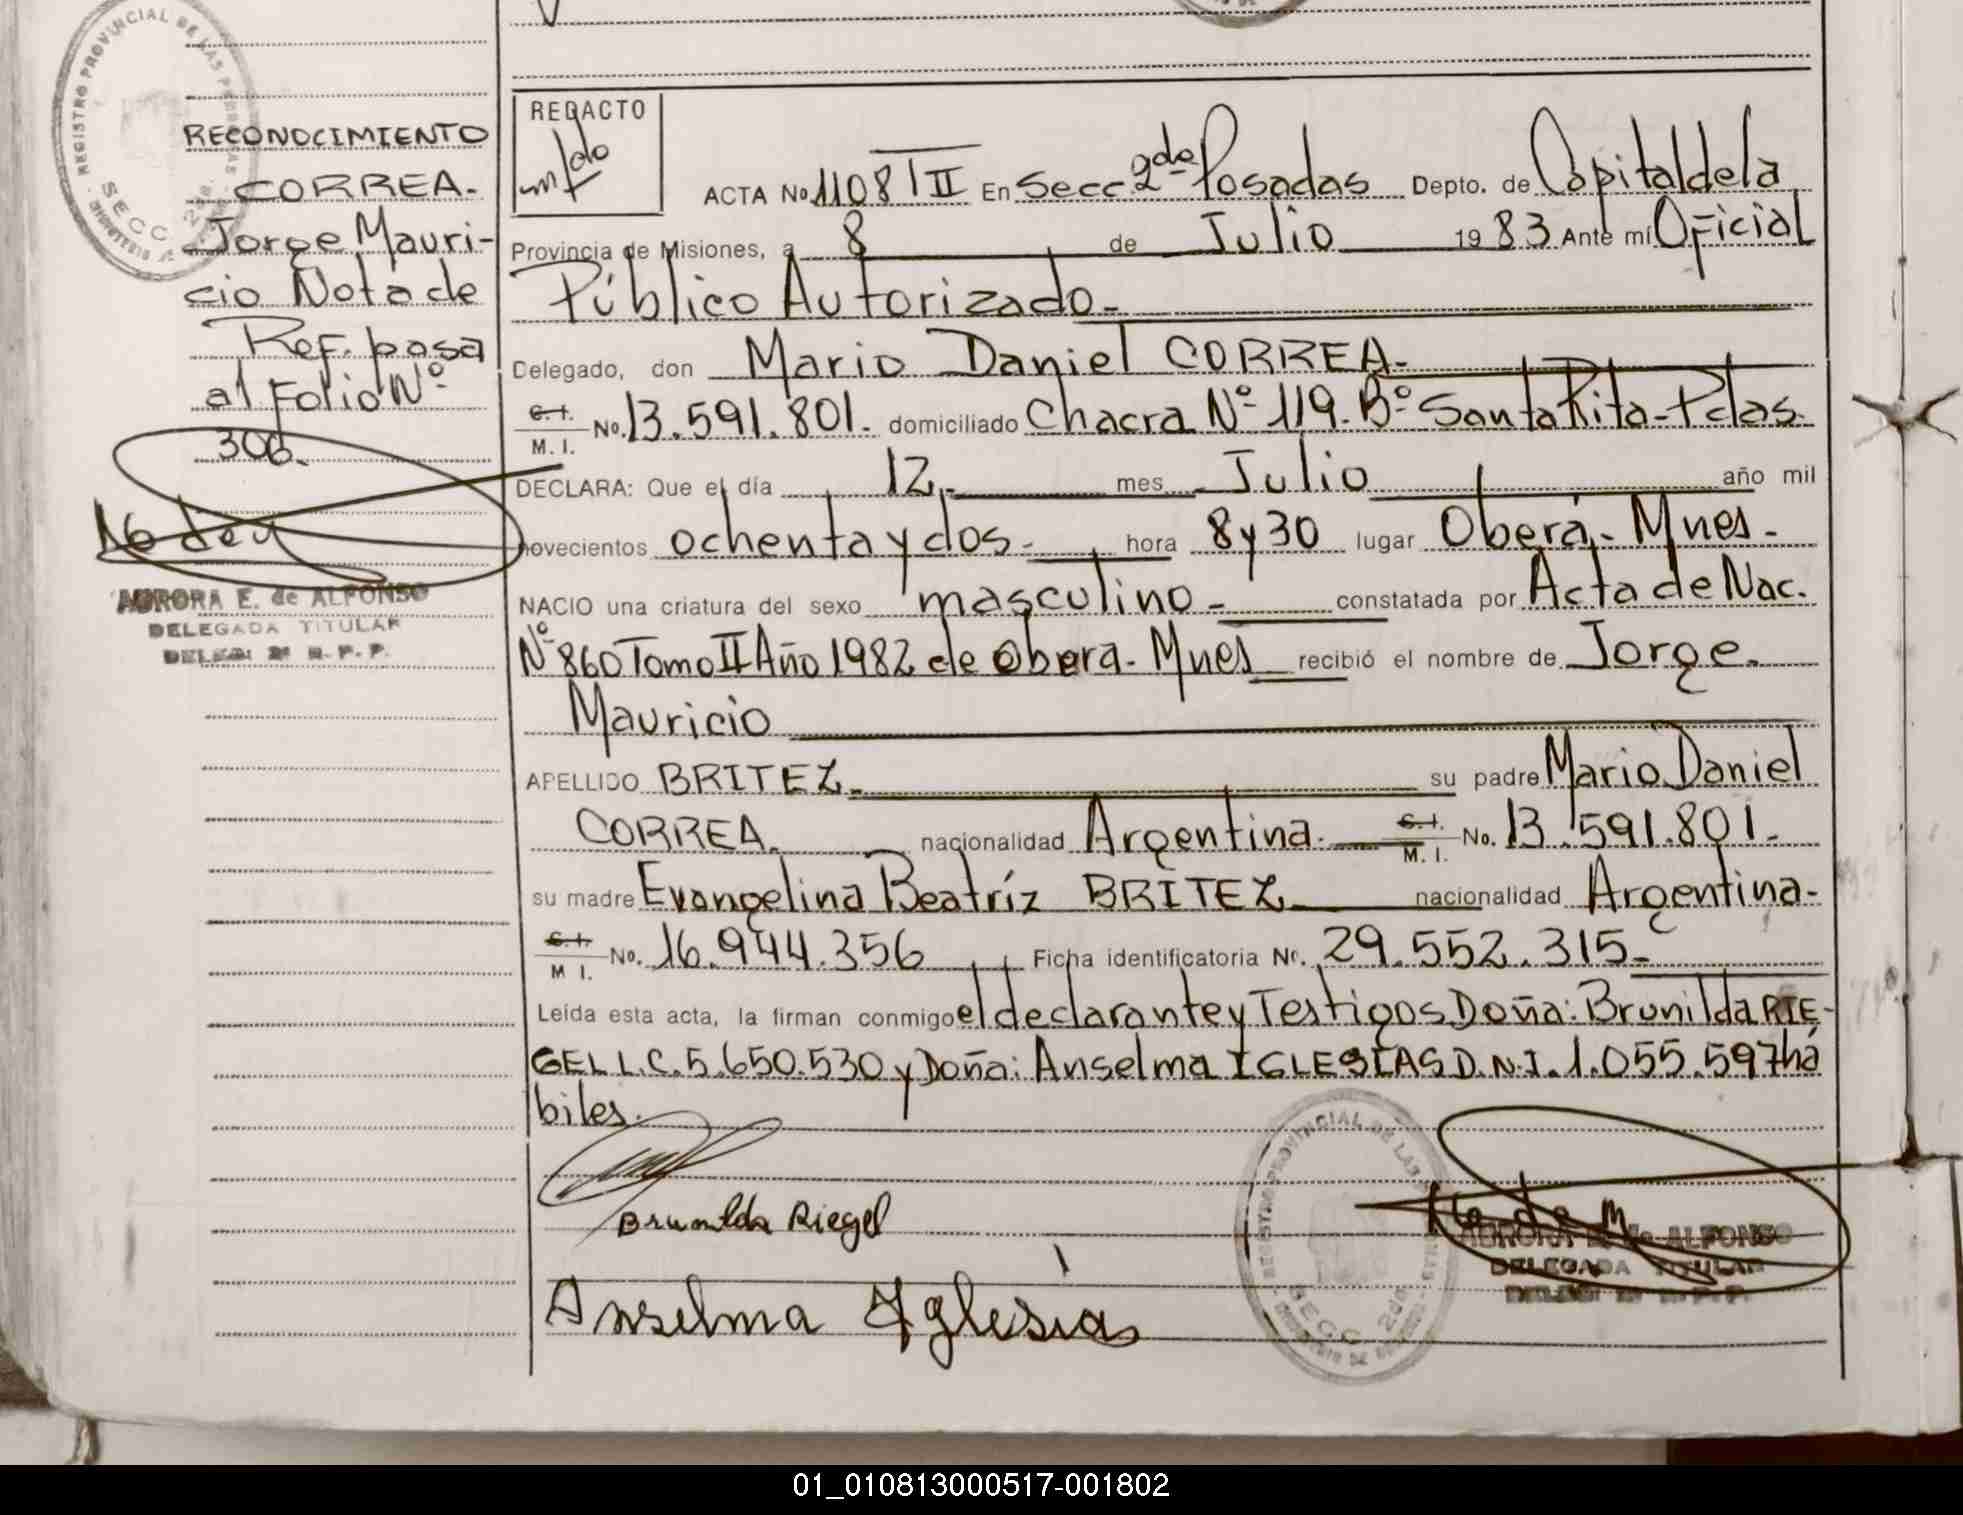 REGISTRO PROVINCIAL DE LAS PERSONAS
SECC. 2da.
RECONOCIMIENTO
CORREA.
Jorge Mauri-
cio Nota de
Ref. pasa
al Folio Nº
306.
AURORA E. de ALFONSO
DELEGADA TITULAR
DELEG: 2ª R.P.P.
REDACTO
ACTA No. 1108 T II En Secc. 2da Posadas Depto. de Capital de la
Provincia de Misiones, a 8 de Julio 19 83 Ante mí Oficial
Público Autorizado.-
Delegado, don Mario Daniel CORREA.-
C.I. / M.I. No. 13.591.801. domiciliado Chacra Nº 119. Bº Santa Rita-Pdas.
DECLARA: Que el día 12.- mes Julio año mil
novecientos ochenta y dos.- hora 8 y 30 lugar Oberá.- Mnes.-
NACIO una criatura del sexo masculino.- constatada por Acta de Nac.
Nº 860 Tomo II Año 1982 de Obera.- Mnes recibió el nombre de Jorge.
Mauricio
APELLIDO BRITEZ.- su padre Mario Daniel
CORREA. nacionalidad Argentina.- C.I. / M.I. No. 13.591.801.-
su madre Evangelina Beatríz BRITEZ nacionalidad Argentina-
C.I. / M I. No. 16.944.356 Ficha identificatoria Nº. 29.552.315.-
Leída esta acta, la firman conmigo el declarante y Testigos Doña: Brunilda RIE-
GEL L.C. 5.650.530 y Doña: Anselma IGLESIAS D.N.I. 1.055.597 há
biles.
Brunilda Riegel
Anselma Iglesias
REGISTRO PROVINCIAL DE LAS
SECC. 2da.
AURORA E. de ALFONSO
DELEGADA TITULAR
DELEG: 2ª R.P.P.
01_010813000517-001802